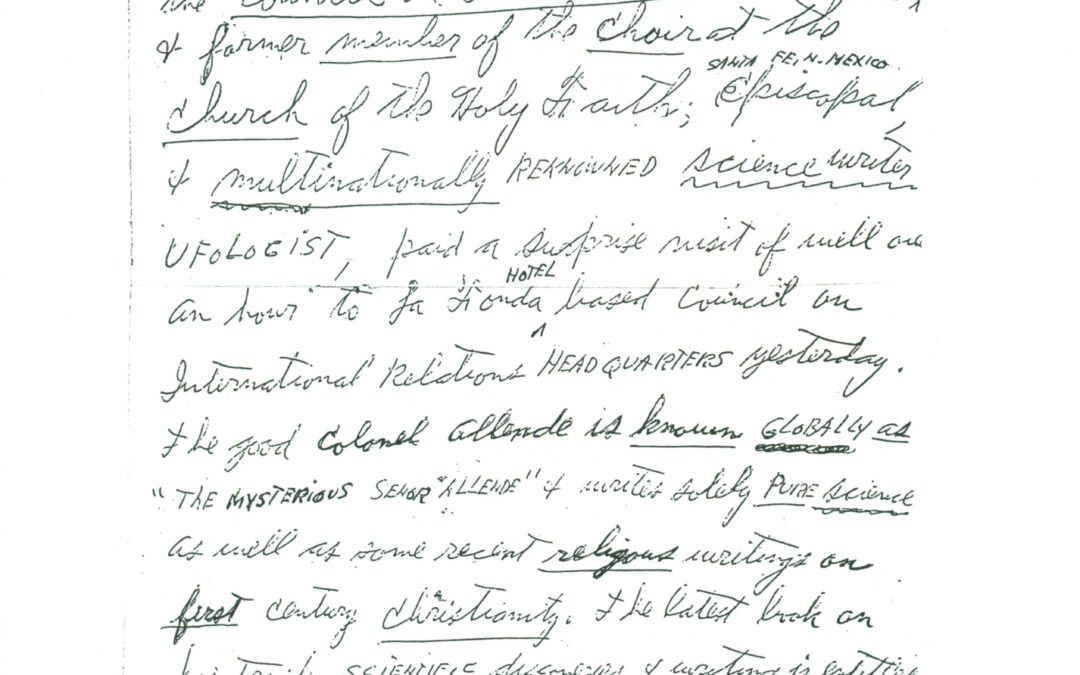 the
& former member of the choir at the
SANTA FE, N. MEXICO
church of the Holy Faith; Episcopal,
& multinationally RENNOWNED science writer
UFOLOGIST, paid a surprise visit of well ove
HOTEL
an hour to La Fonda based Council on
International Relations HEADQUARTERS yesterday.
The good Colonel Allende is known GLOBALLY as
"THE MYSTERIOUS SENOR "ALLENDE" & writes solely PURE science
as well as some recent religous writings on
first century Christianity. The latest book on
SCIENTIFIC discoverer & writing is